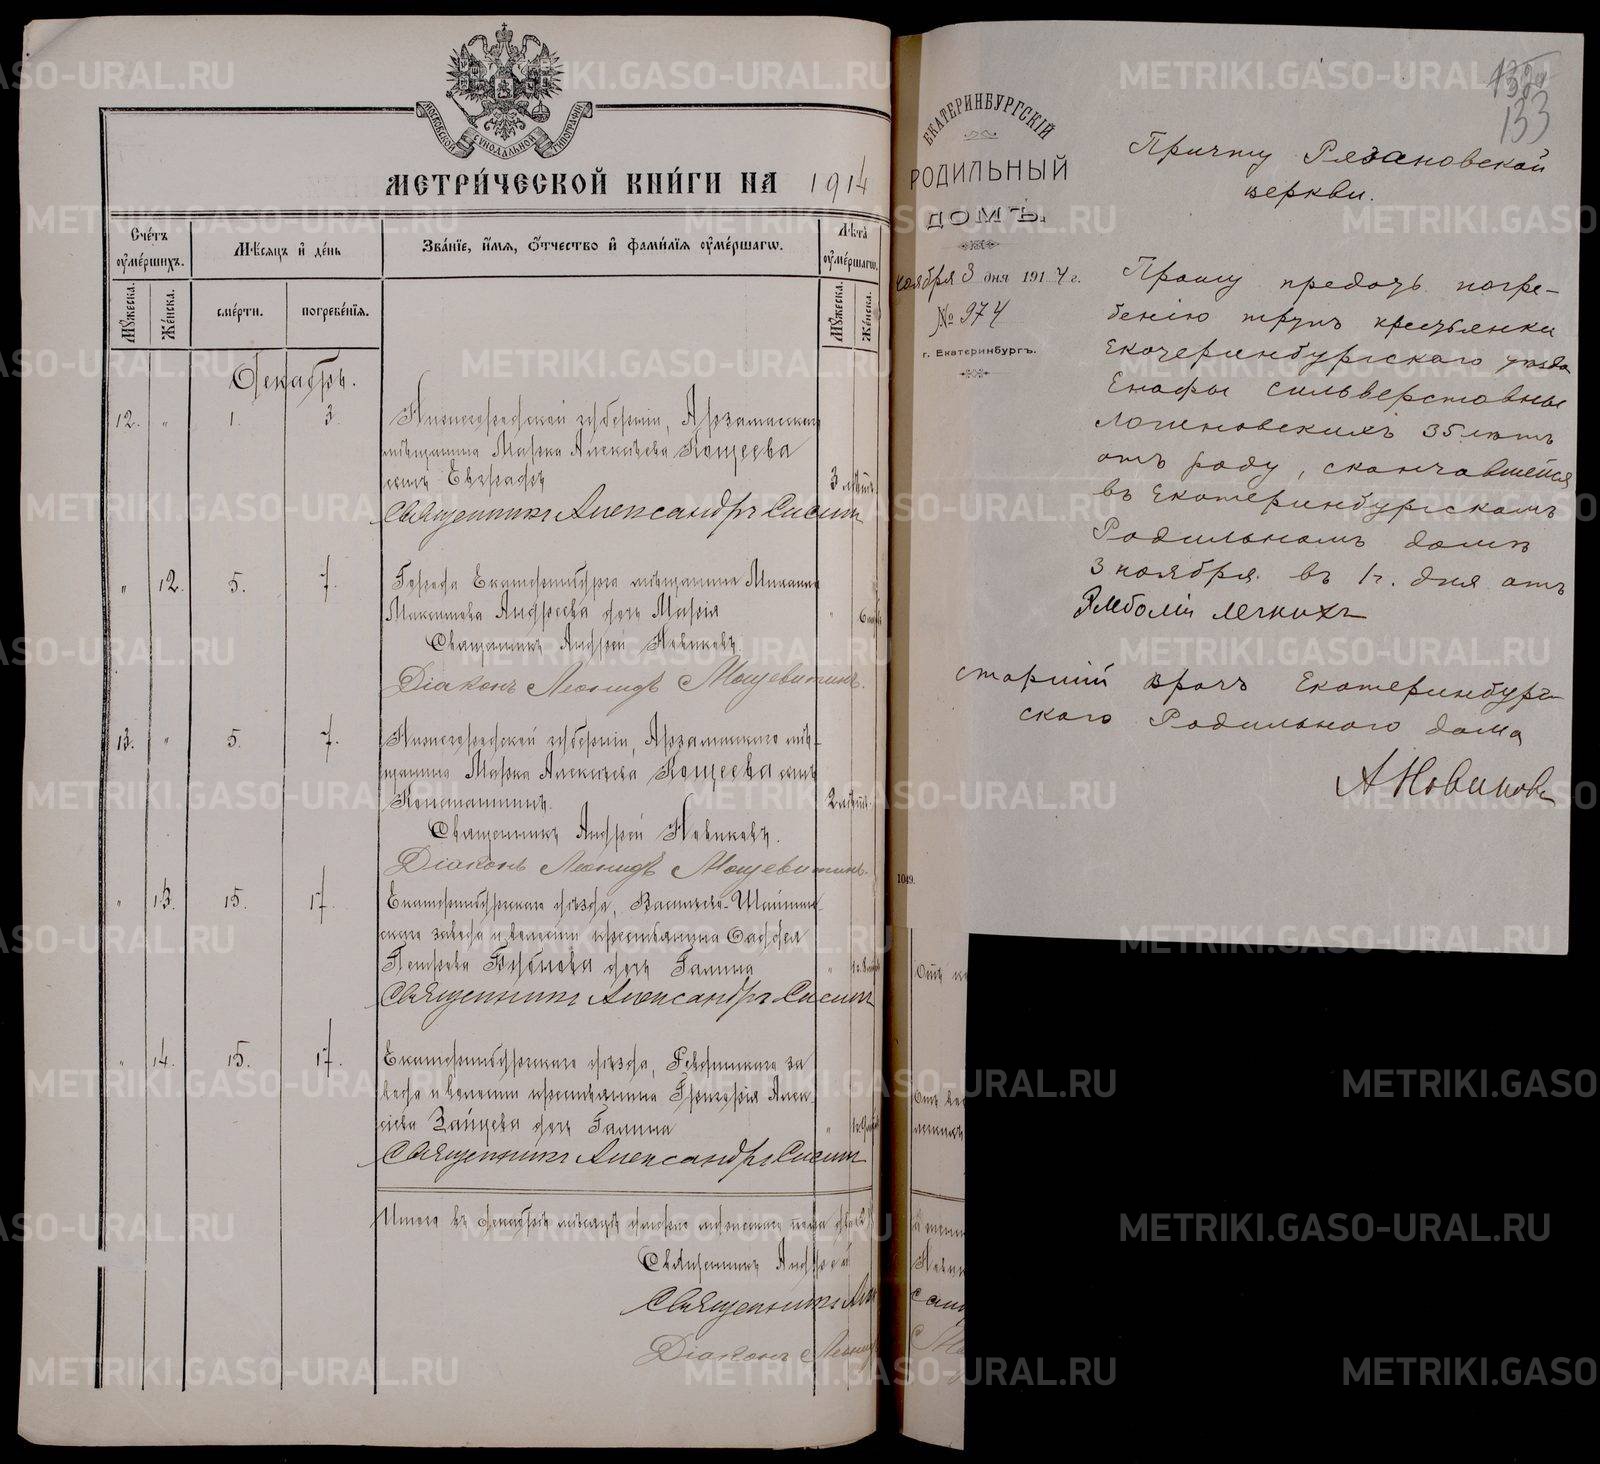 МОСКОВСКОЙ СУНОДАЛЬНОЙ ТИПОГРАФІИ
МЕТРИ́ЧЕСКОЙ КНИ́ГИ НА 1914
Сче́тъ ᲂу҆ме́ршихъ.
Мѣ́сяцъ и҆ де́нь
Зва́нїе, и҆́мя, ѻ҆́тчество и҆ фами́лїя ᲂу҆ме́ршагѡ.
Лѣта̀ ᲂу҆ме́ршагѡ.
Мꙋ́жеска.
Же́нска.
сме́рти.
погребе́нїя.
Мꙋ́жеска.
Же́нска.
Декабрь.
12. " 1. 3. Нижегородской губерніи, Арзамаскаго
мѣщанина Марка Алексѣева Кощеева
сынъ Евграфъ 3 лѣтъ
Священникъ Александръ
" 12. 5. 7. Города Екатеринбурга мѣщанина Михаила
Максимова Андреева дочь Марія " 6
Священникъ Андрей Новиковъ.
Діаконъ Леонидъ Мощевитинъ.
13. " 5. 7. Нижегородской губерніи, Арзамаскаго мѣ-
щанина Марка Алексѣева Кощеева сынъ
Константинъ. 2
Священникъ Андрей Новиковъ.
Діаконъ Леонидъ Мощевитинъ.
" 13. 15. 17. Екатеринбургскаго уѣзда, Васильево-Шайтан-
скаго завода и волости крестьянина
Петрова дочь Галина "
Священникъ Александръ
" 14. 15. 17. Екатеринбургскаго уѣзда, Ревдинскаго за
вода и волости крестьянина Григорія Алек-
сѣева Зайцева дочь Галина "
Священникъ Александръ
Итого въ декабрѣ мѣсяцѣ
Священникъ Андрей
Священникъ
Діаконъ Леонид
132
133
ЕКАТЕРИНБУРГСКІЙ
РОДИЛЬНЫЙ
ДОМЪ.
ноября 3 дня 1914 г.
№ 974
г. Екатеринбургъ.
Причту Рязановской
церкви.
Прошу предать погре-
бенію трупъ крестьянки
Екатеринбургскаго уѣзда
Енафы Сильверстовны
Логиновскихъ 35 лѣтъ
отъ роду, скончавшейся
въ Екатеринбургскомъ
Родильномъ домѣ
3 ноября въ 1 ч. дня отъ
Эмболіи легкихъ
старшій врачъ Екатеринбург-
скаго Родильнаго дома
А Новиковъ
1049.
METRIKI.GASO-URAL.RU